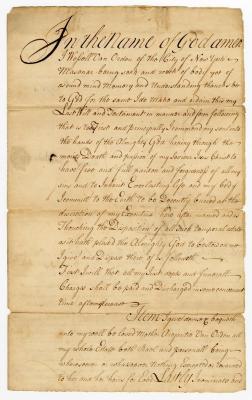 In the Name of God amen
I Wessell Van Orden of the City of New York
Masonar being sick and weak of body yet of
sound mind Memory and Understanding thanks be
to God for the same Do make and ordain this my
Last Will and Testament in manner and form following
that is to say First and principally I commend my soul into
the hands of the Almighty God hoping through the
Death and passion of my Saviour Jesus Christ to
have full and free pardon and forgiveness of all my
sins and to Inherit Everlasting life and my body
I committ to the Earth to be Decently buried at the
discretion of my Executrix hereafter named and
Touching the Disposition of all such temporal estate
as it hath pleased the Almighty God to bestow on me
I give and Dispose thereof as followeth
First I will that all my Just Debts and funerall
Charges shall be paid and Discharged in some convenient
time after my Decease
Item I give Devise & bequeath
unto my well beloved Mother Van Orden all
my whole Estate both Reall and personall
whatsoever or wheresoever Nothing Excepted or reserved
to her and her heirs for Ever Lastly I nominate and